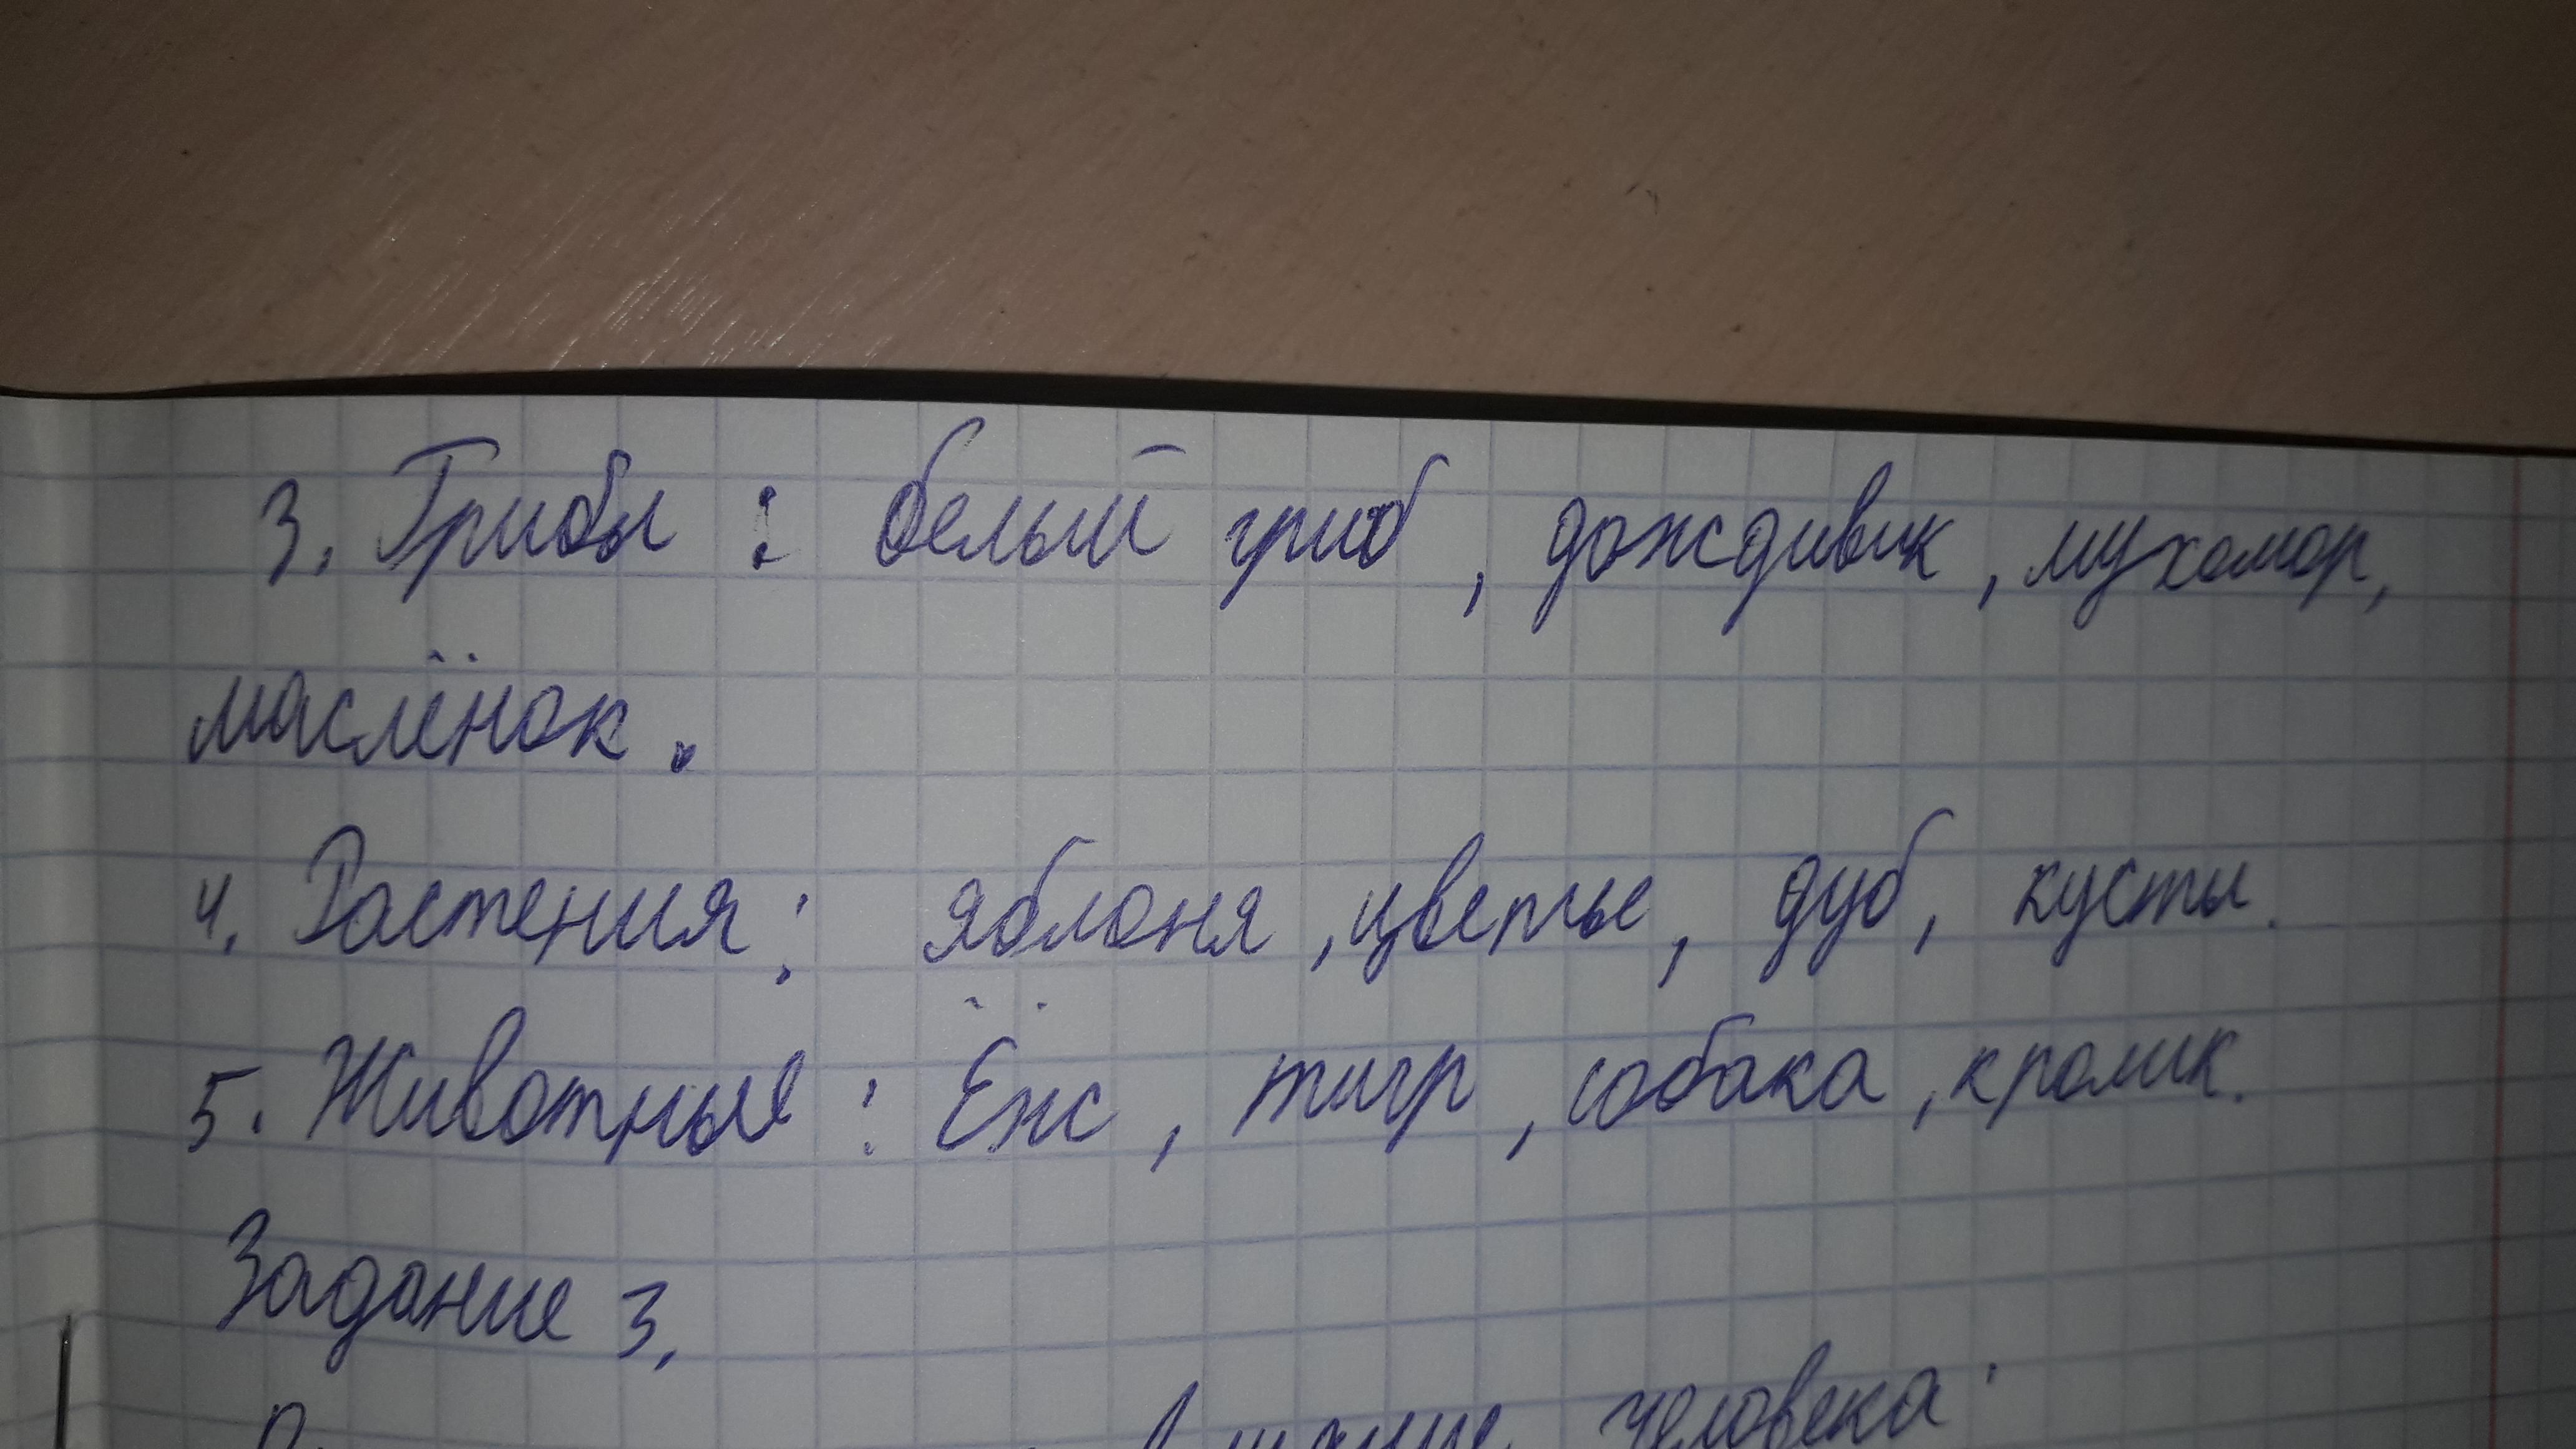 3. Грибы : белый гриб, дождивик, мухомор,
маслёнок.
4. Растения: яблоня, цветье, дуб, кусты.
5. Животные: Ёжс, тигр, собака, кролик.
Задание 3.
человека: